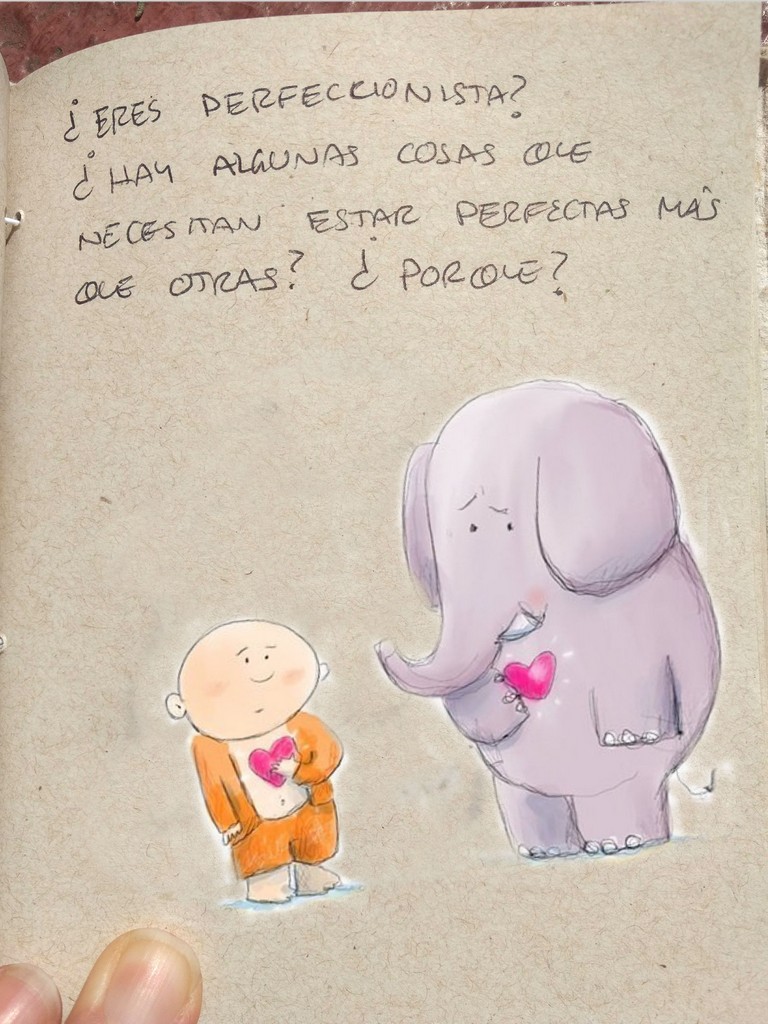 ¿ERES PERFECCIONISTA?
¿HAY ALGUNAS COSAS QUE
NECESITAN ESTAR PERFECTAS MÁS
QUE OTRAS? ¿PORQUE?